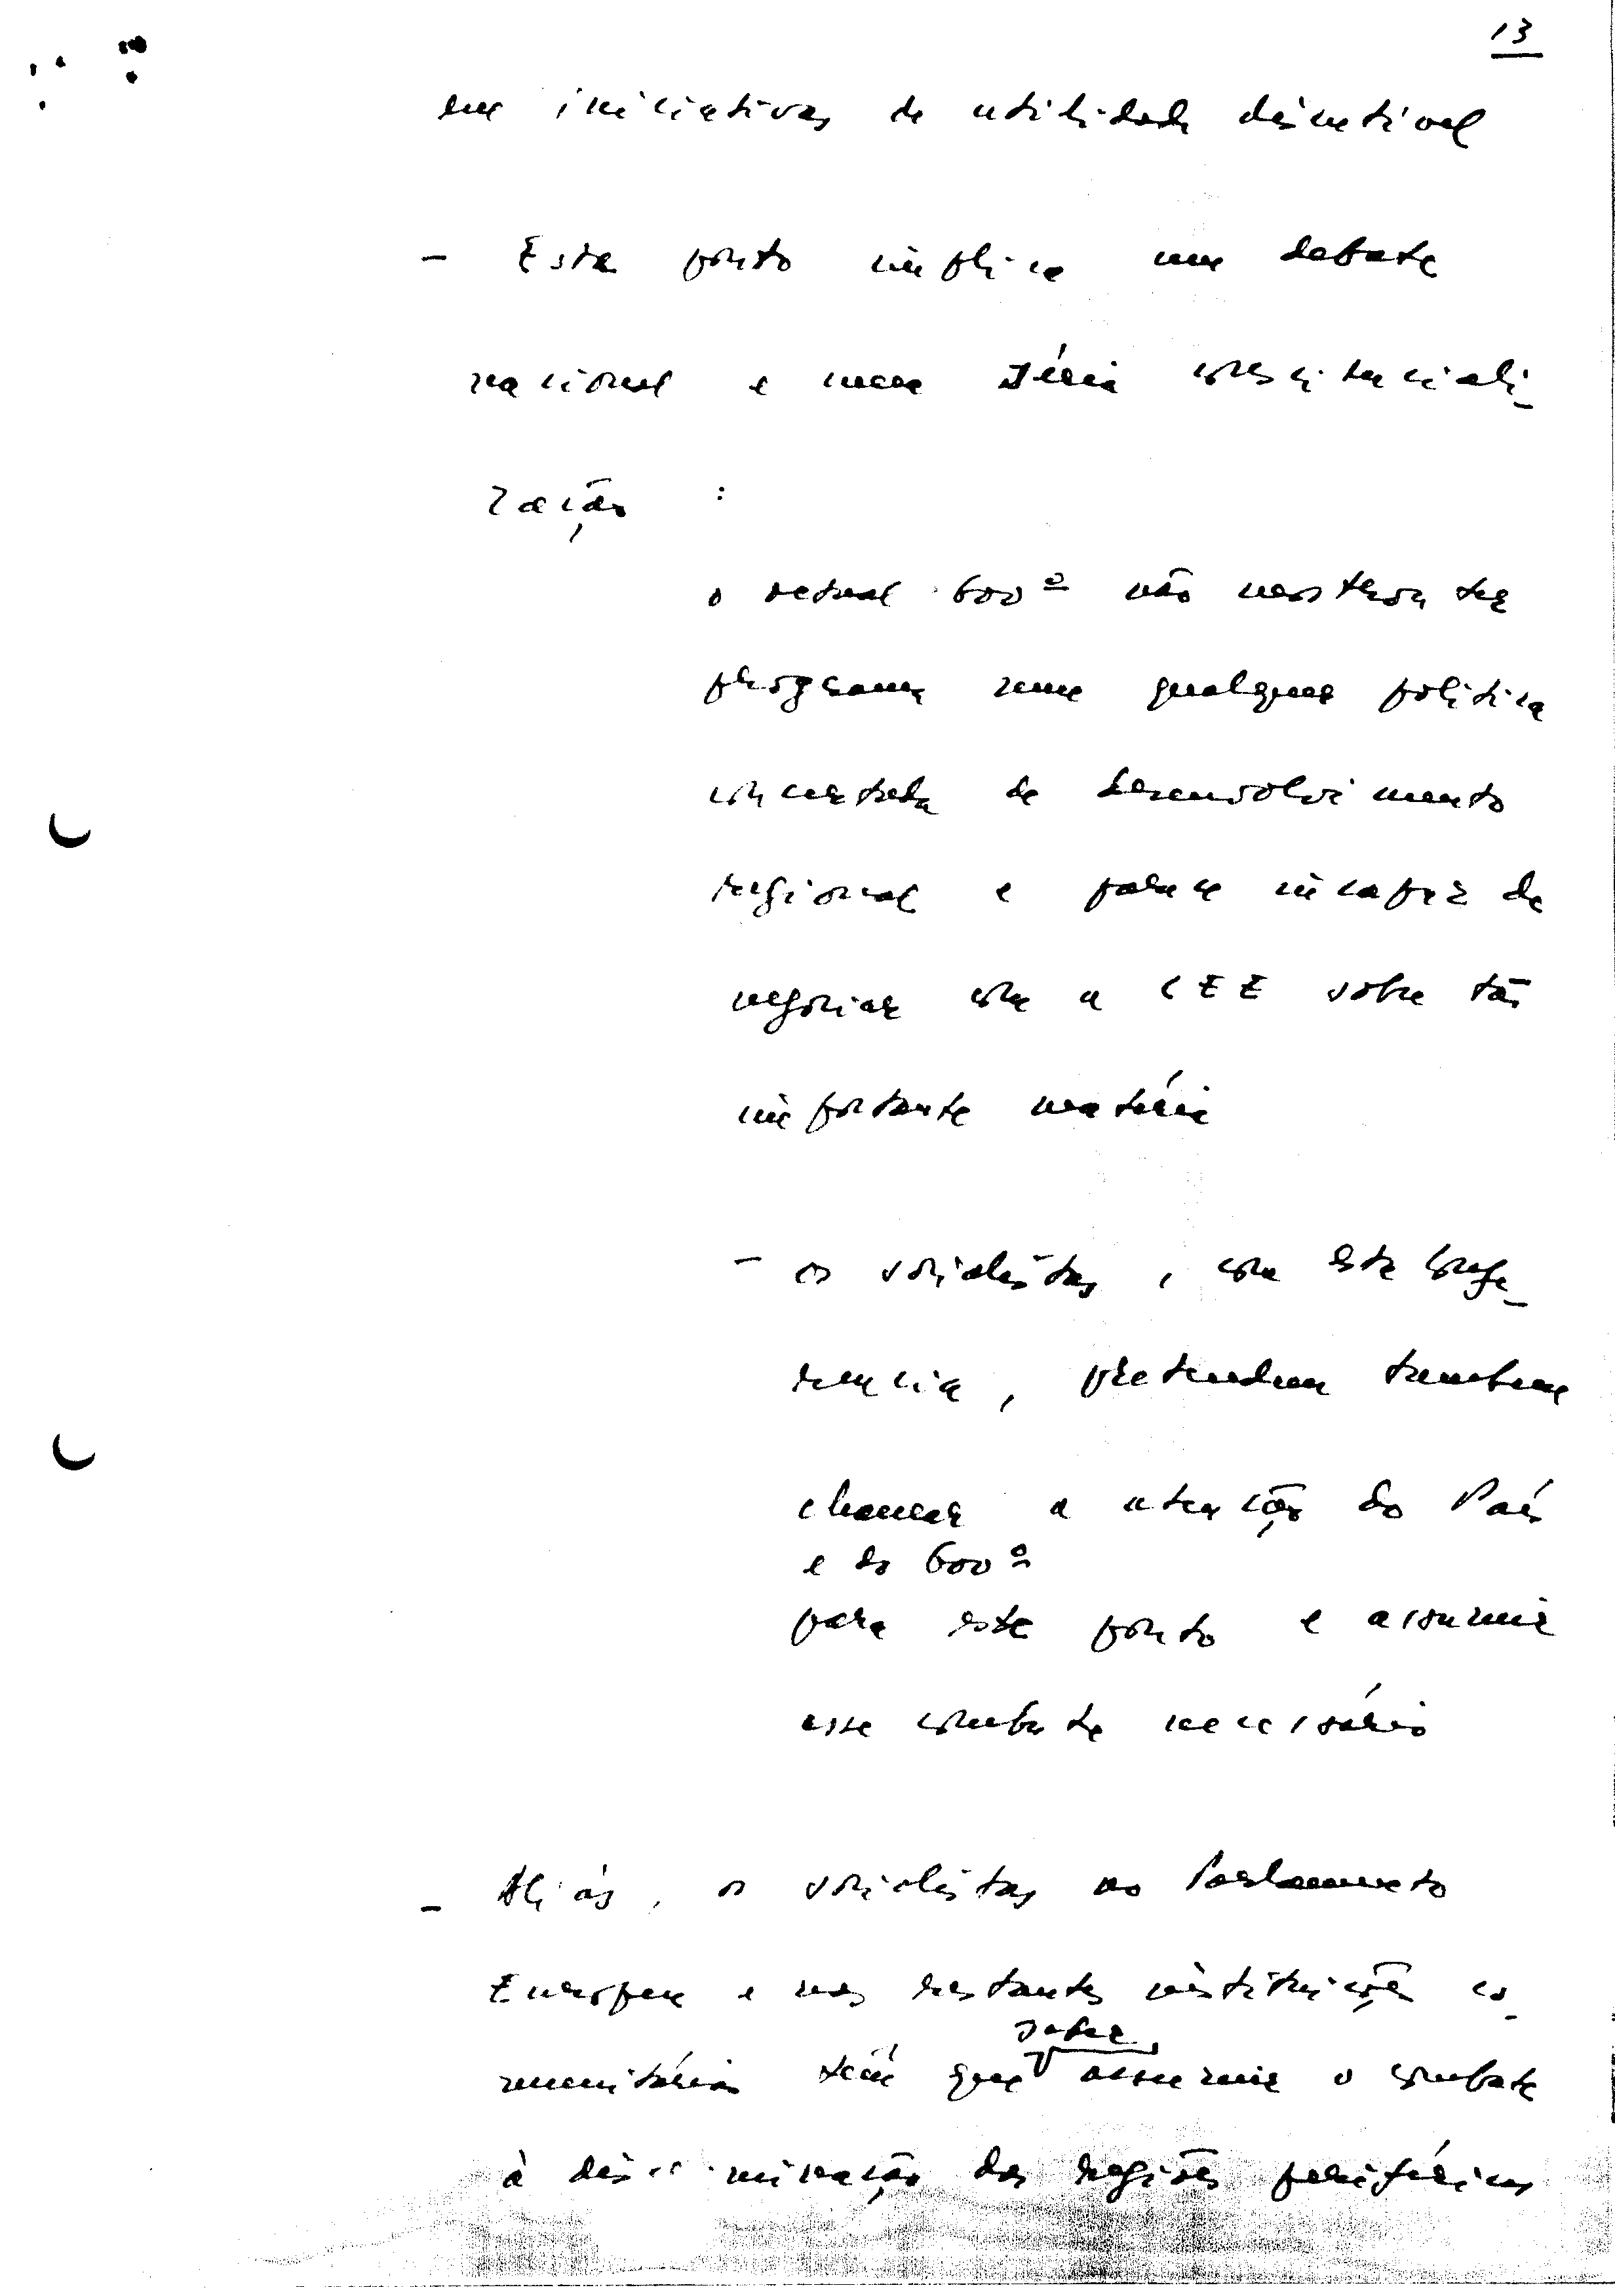 13
em iniciativas de utilidade discutível
- Este ponto implica um debate
nacional e uma séria conscienciali-
zação :
o actual Govº não mostrou ter
programa nem qualquer política
concertada de desenvolvimento
regional e parece incapaz de
negociar com a CEE sobre tão
importante matéria
- os socialistas, com esta confe-
rencia, pretendem tambem
chamar a atenção do País
e do Govº
para este ponto e assumir
esse combate necessário
- Aliás, os socialistas no Parlamento
Europeu e nas restantes instituições co-
saber
munitárias têm que assumir o combate
à discriminação das regiões periféricas